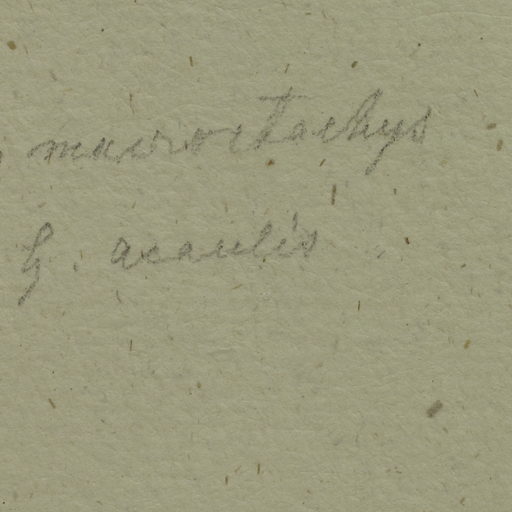 macrostachys
G. acaulis